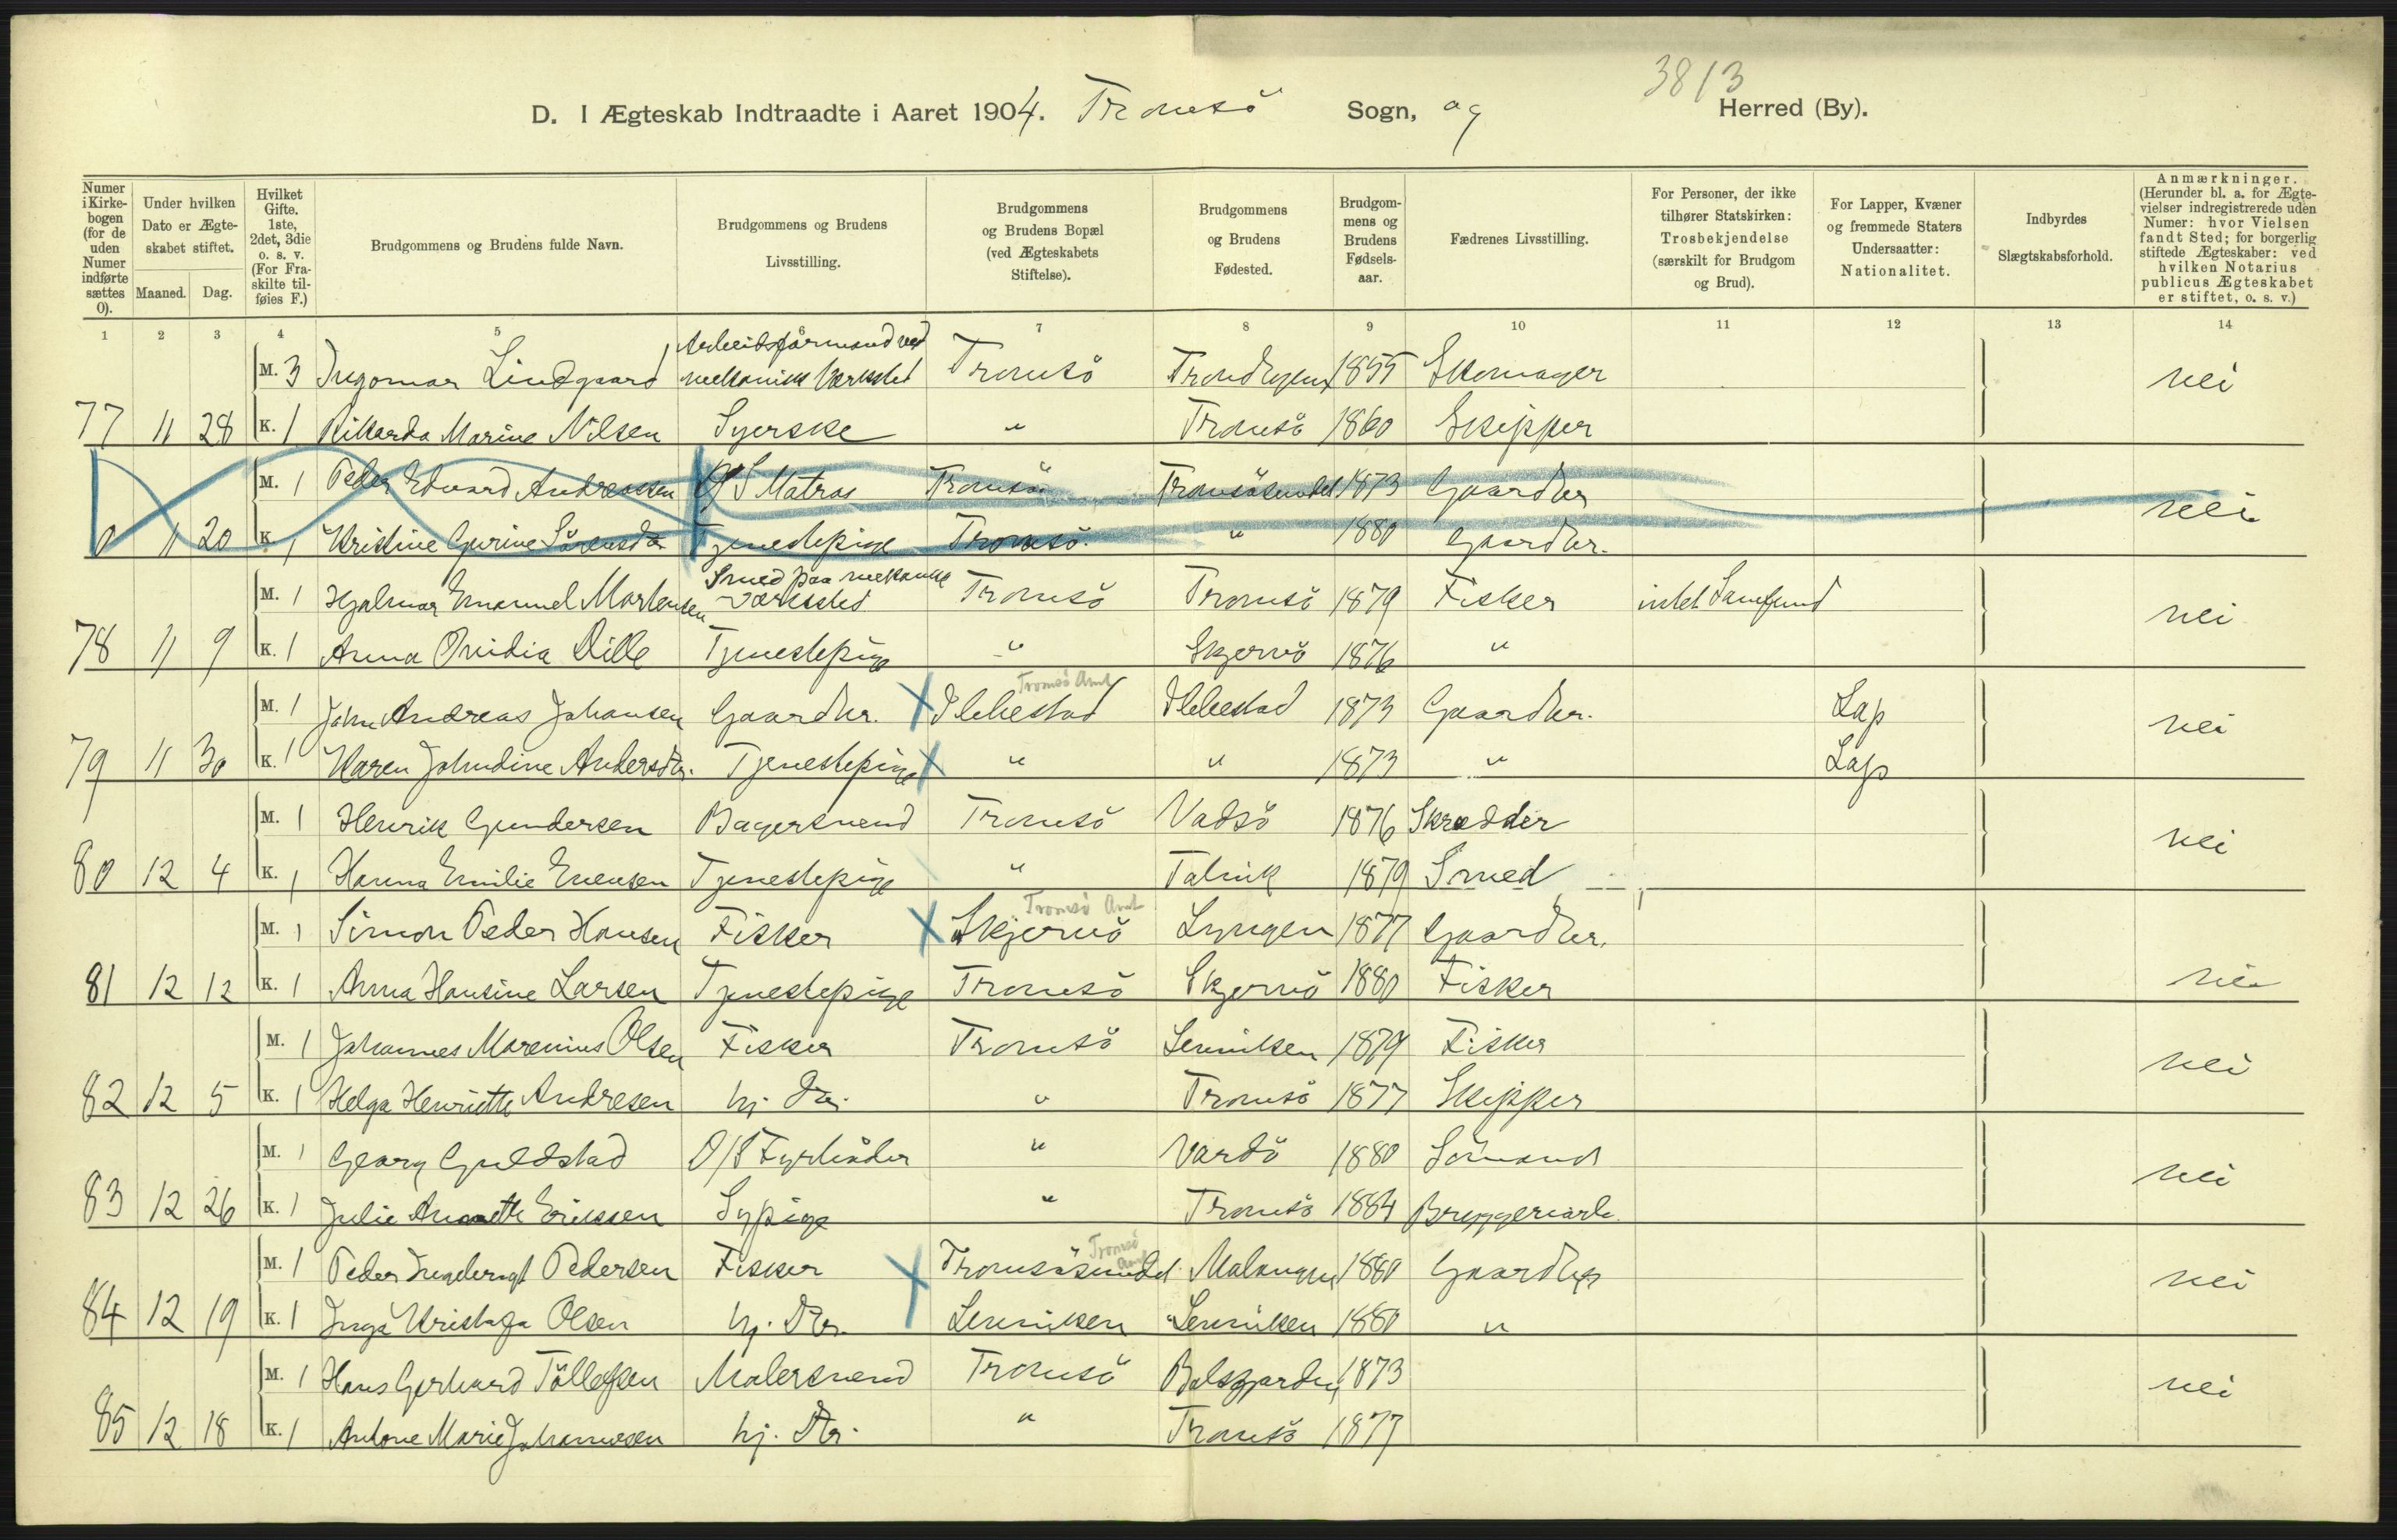 3813
D. I Ægteskab Indtraadte i Aaret 1904. Tromsö Sogn, og Herred (By).
Numer i Kirkebogen (for de uden Numer indførte sættes 0).
Under hvilken Dato er Ægteskabet stiftet.
Maaned. Dag.
Hvilket Gifte. 1ste, 2det, 3die o. s. v. (For Fraskilte tilføies F.)
Brudgommens og Brudens fulde Navn.
Brudgommens og Brudens Livsstilling.
Brudgommens og Brudens Bopæl (ved Ægteskabets Stiftelse).
Brudgommens og Brudens Fødested.
Brudgommens og Brudens Fødselsaar.
Fædrenes Livsstilling.
For Personer, der ikke tilhører Statskirken: Trosbekjendelse (særskilt for Brudgom og Brud).
For Lapper, Kvæner og fremmede Staters Undersaatter: Nationalitet.
Indbyrdes Slægtskabsforhold.
Anmærkninger. (Herunder bl. a. for Ægtevielser indregistrerede uden Numer: hvor Vielsen fandt Sted; for borgerlig stiftede Ægteskaber: ved hvilken Notarius publicus Ægteskabet er stiftet, o. s. v.)
1 2 3 4 5 6 7 8 9 10 11 12 13 14
M. 3 Ingomar Lindgaard Arbeidsformand ved mekanisk Værksted Tromsö Trondhjem 1855 Skomager nei
77 11 28 K. 1 Rikarda Marine Nilsen Syerske " Tromsö 1860 Skipper
M. 1 Peder Edvard Andreassen O/S Matros Tromsö Tromsösundet 1873 Gaardbr nei
0 11 20 K. 1 Kristine Gurine Sörensdr Tjenestepige Tromsö. " 1880 Gaardbr.
M. 1 Hjalmar Emanuel Mortensen Smed paa mekanisk Værksted Tromsö Tromsö 1879 Fisker intet Samfund nei
78 11 9 K. 1 Anna Ovidia Dille Tjenestepige " Skjervö 1876 "
M. 1 John Andreas Johansen Gaardbr. X Ibbestad Tromsö Amt Ibbestad 1873 Gaardbr. Lap nei
79 11 30 K. 1 Karen Johndine Andersdr. Tjenestepige X " " 1873 " Lap
M. 1 Henrik Gundersen Bagersvend Tromsö Vadsö 1876 Skrædder nei
80 12 4 K. 1 Hanna Emilie Evensen Tjenestepige " Talvik 1879 Smed
M. 1 Simon Peder Hansen Fisker X Skjervö Tromsö Amt Lyngen 1877 Gaardbr.
81 12 12 K. 1 Anna Hansine Larsen Tjenestepige Tromsö Skjervö 1880 Fisker nei
M. 1 Johannes Marenius Olsen Fisker Tromsö Lenviken 1879 Fisker nei
82 12 5 K. 1 Helga Henriette Andresen hj. Dtr. " Tromsö 1877 Skipper
M. 1 Georg Guldstad O/S Fyrböder " Vardö 1880 Sömand nei
83 12 26 K. 1 Julie Annette Eriksen Sypige " Tromsö 1884 Bryggeriarb.
M. 1 Peder Ingebrigt Pedersen Fisker X Tromsösundet Tromsö Amt Malangen 1880 Gaardbr nei
84 12 19 K. 1 Inga Kristofa Olsen hj. Dtr. Lenviken Lenviken 1880 "
M. 1 Hans Gerhard Töllefsen Malersvend Tromsö Balsfjorden 1873 nei
85 12 18 K. 1 Antone Marie Johannesen hj. Dtr. " Tromsö 1877